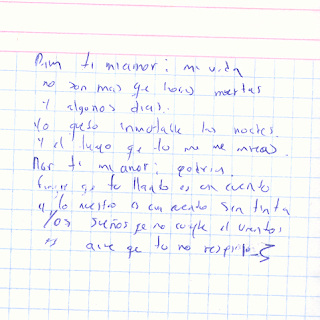 Para ti mi amor: mi vida
no son mas que horas muertas
y algunos dias.
Yo queso las noches.
y el luego que tu me
Por ti mi amor: podria
que tu llanto es un cuento
y lo nuestro es un cuento sin tinta
Yos sueños que no el viento
es aire que tu no respiras